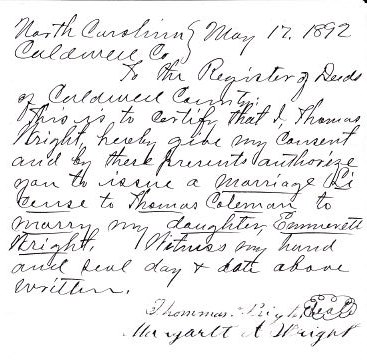 North Carolina } May 17, 1892
Caldwell Co.
To the Register of Deeds
of Caldwell County:
This is to certify that I, Thomas
Wright, hereby give my consent
and by these presents authorize
you to issue a marriage Li
cense to Thomas Coleman to
marry my daughter, Emmerett
Wright. Witness my hand
and seal day & date above
written.
Thommas Right Seal
Margarett A Wright